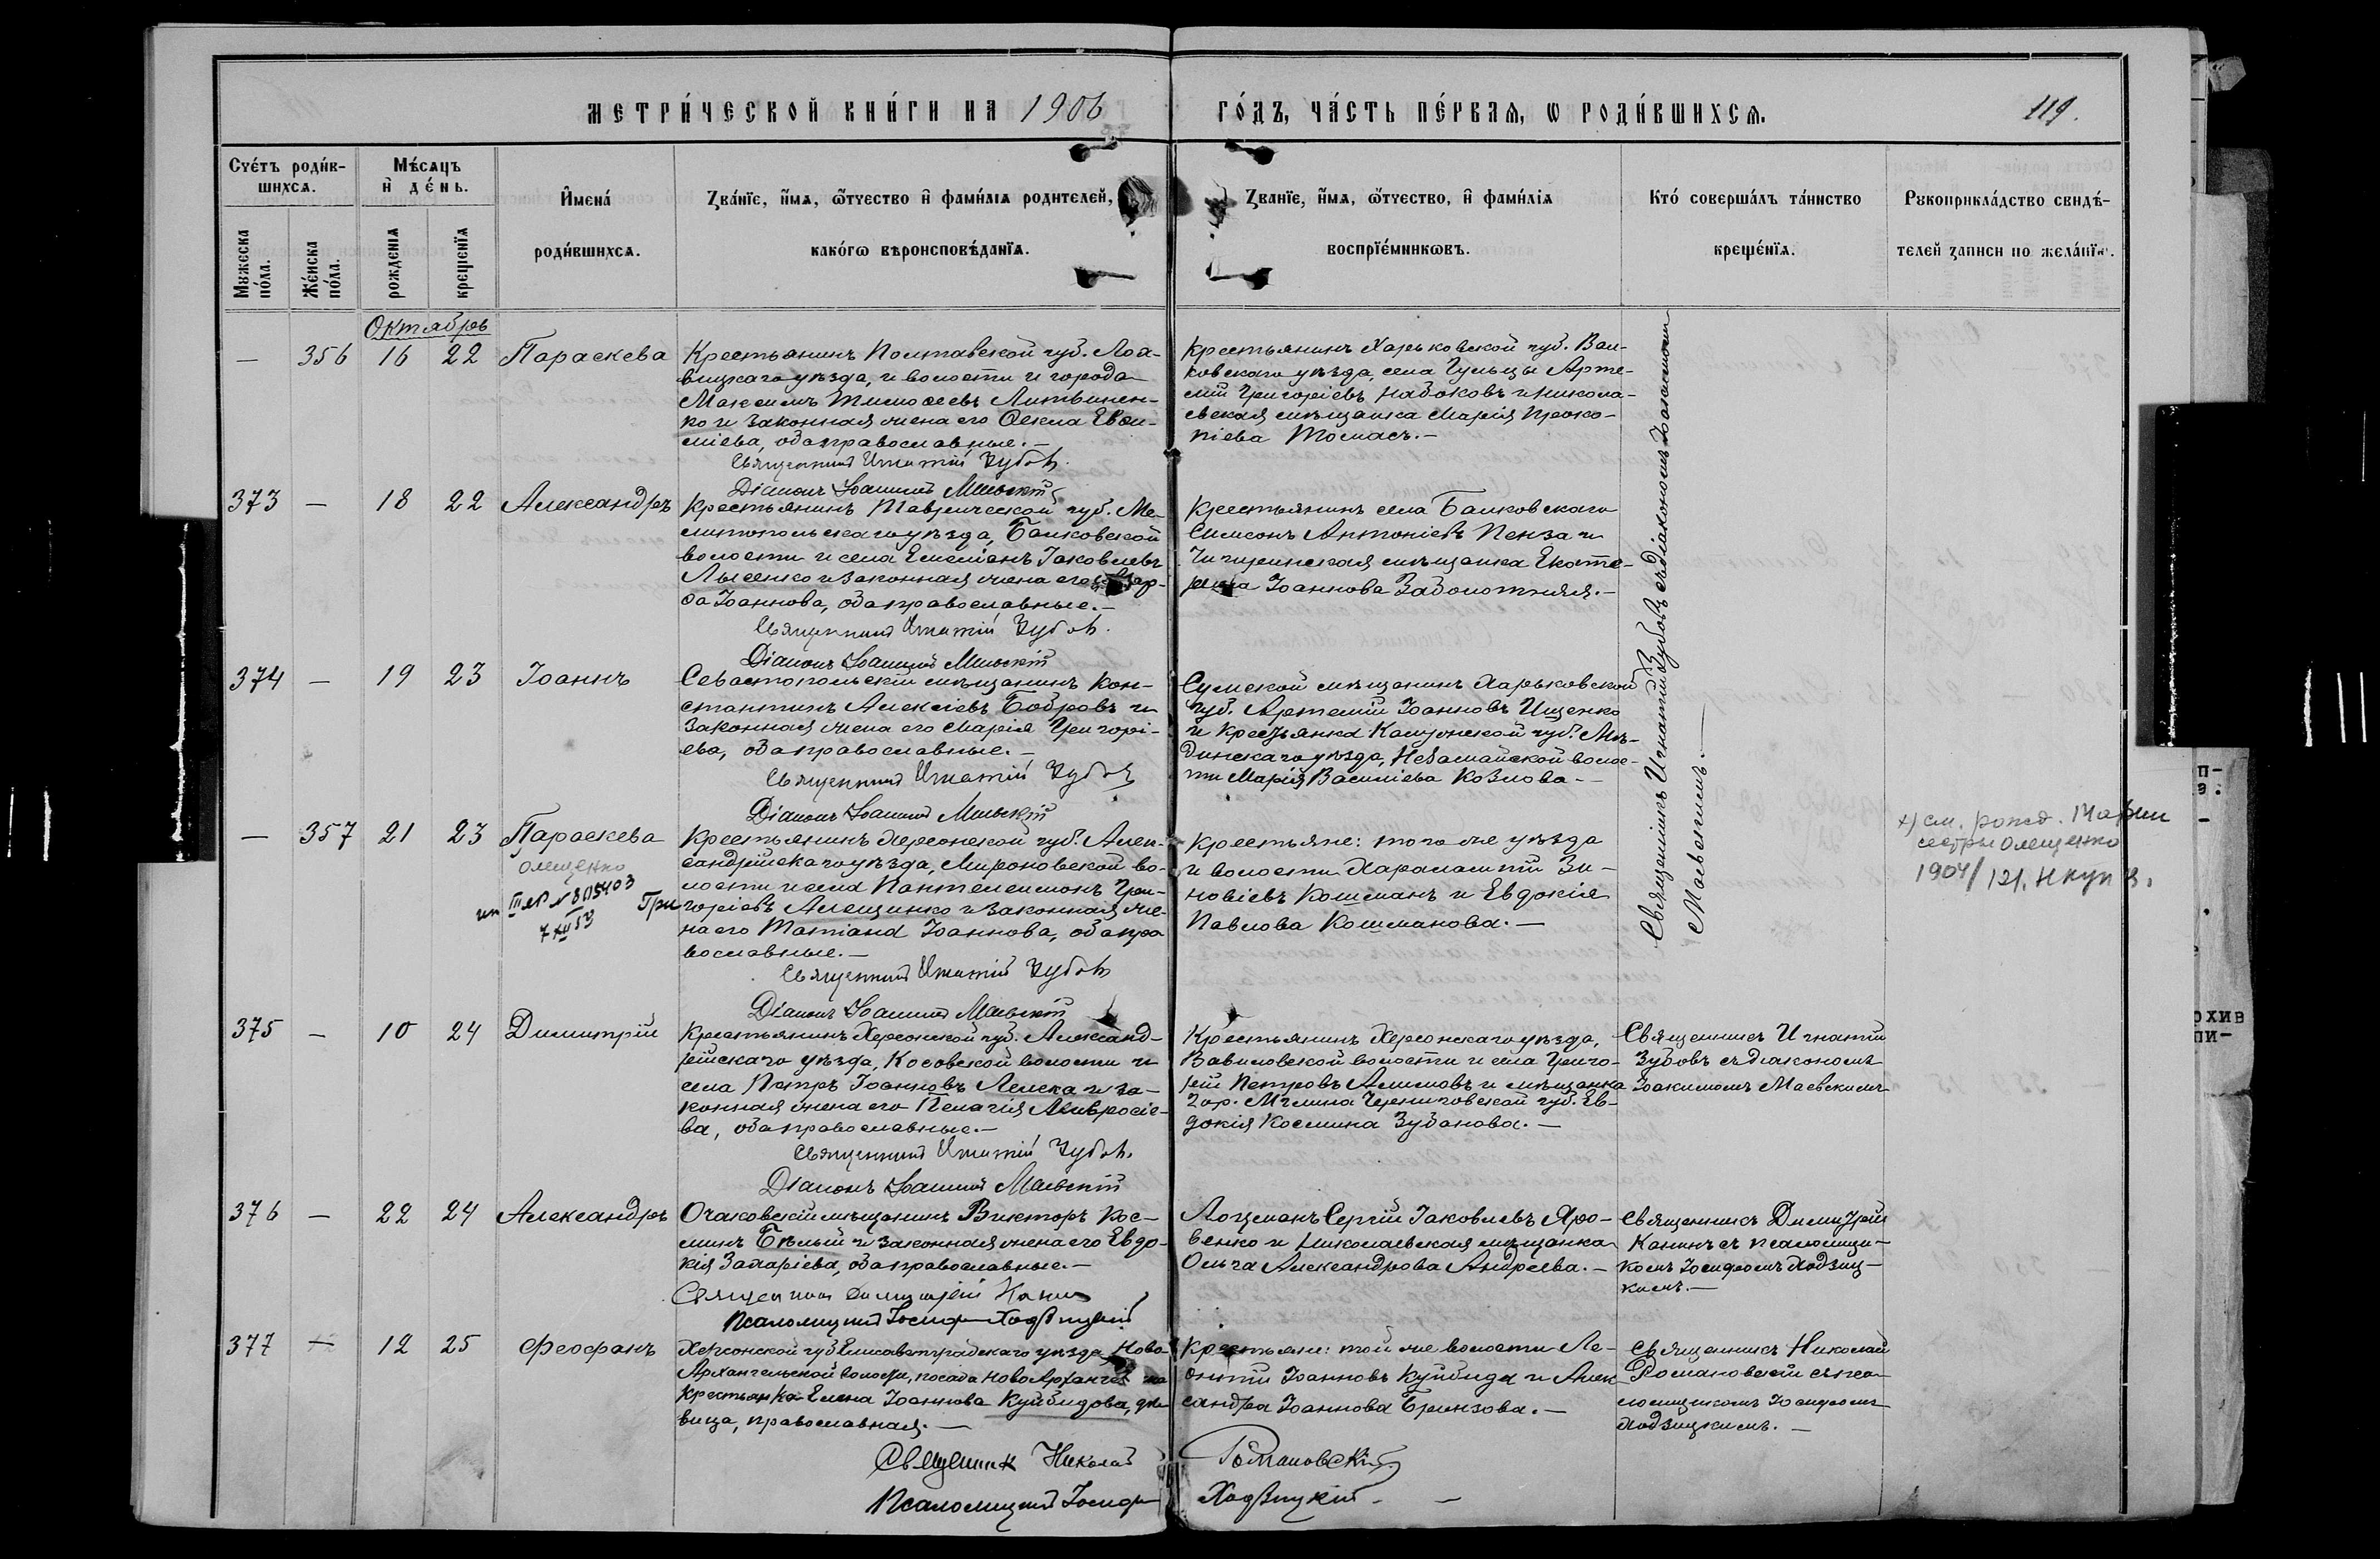 МЕТРИ́ЧЕСКОЙ КНИ́ГИ НА 1906 ГО́ДЪ, ЧА́СТЬ ПЕ́РВАѦ, Ѡ РОДИ́ВШИХСѦ.
119.
Счетъ роди́в-
шихсѧ.
Мужеска
по́ла.
Же́нска
по́ла.
Мѣ́сѧцъ
и де́нь.
рожденіѧ
крещенїѧ
Имена́
роди́вшихсѧ.
Зва́нїе, и́мѧ, ѻ́тчество и фами́лїѧ родителей,
како́гѡ вѣроисповѣ́данїѧ.
Зва́нїе, и́мѧ, ѻ́тчество, и фами́лїѧ
воспрїе́мникѡвъ.
Кто́ соверша́лъ та́инство
креще́нїѧ.
Рукоприкла́дство свидѣ́-
телей записи по жела́нїю.
Октябрь
— 356 16 22 Параскева
Крестьянинъ Полтавской губ. Лох-
вицкаго уѣзда, и волости и города
Максимъ Тимоѳеевъ Литвинен-
ко и законная жена его Ѳекла Евѳи-
міева, оба православные.—
Священникъ Игнатій Зубовъ.
Діаконъ Іоакимъ Маевскій
Крестьянинъ Харьковской губ. Вал-
ковскаго уѣзда, села Гульцы Арте-
мій Григоріевъ Набоковъ и никола-
евская мѣщанка Марія Проко-
піева Томасъ.—
Священникъ Игнатій Зубовъ съ діакономъ Іоакимомъ
Маевскимъ.—
373 — 18 22 Александръ
Крестьянинъ Таврической губ. Ме-
литопольскаго уѣзда, Балковской
волости и села Емеліанъ Іаковлевъ
Лысенко и законная жена его Мар-
ѳа Іоаннова, оба православные.—
Священникъ Игнатій Зубовъ.
Діаконъ Іоакимъ Маевскій
Крестьянинъ села Балковскаго
Симеонъ Антоніевъ Пенза и
Чигиринская мѣщанка Екате-
рина Іоаннова Заболотняя.—
374 — 19 23 Іоаннъ
Севастопольскій мѣщанинъ Кон-
стантинъ Алексіевъ Бобровъ и
законная жена его Марія Григорі-
ева, оба православные.—
Священникъ Игнатій Зубовъ
Діаконъ Іоакимъ Маевскій
Сумской мѣщанинъ Харьковской
губ. Артемій Іоанновъ Ищенко
и крестьянка Калужской губ. Мѣ-
дынскаго уѣзда, Незамайской волос-
ти Марія Василіева Козлова.—
— 357 21 23 Параскева
Олещенко
7 XII 53
Гри
Крестьянинъ Херсонской губ. Алек-
сандрійскаго уѣзда, Мироновской во-
лости и села Пантелеимонъ Гри-
горіевъ Алещинко и законная же-
на его Татіана Іоаннова, оба пра
вославные.—
Священникъ Игнатій Зубовъ
Діаконъ Іоакимъ Маевскій
Крестьяне: того же уѣзда
и волости Харалампій Зи-
новіевъ Кошманъ и Евдокія
Павлова Кошманова.—
х) см. рожд. Марии
сестры Олещенко
1904/121.
375 — 10 24 Димитрій
Крестьянинъ Херсонской губ. Александ-
рійскаго уѣзда, Косовской волости и
села Петръ Іоанновъ Лелека и за-
конная жена его Пелагія Амвросіе-
ва, оба православные.—
Священникъ Игнатій Зубовъ.
Діаконъ Іоакимъ Маевскій
Крестьянинъ Херсонскаго уѣзда,
Вавиловской волости и села Григо-
рій Петровъ Алимовъ и мѣщанка
гор. Мглина Черниговской губ. Ев-
докія Космина Зубанова.—
Священникъ Игнатій
Зубовъ съ діакономъ
Іоакимомъ Маевскимъ
376 — 22 24 Александръ
Очаковскій мѣщанинъ Викторъ Кос-
минъ Бѣлый и законная жена его Евдо-
кія Захаріева, оба православные.—
Священникъ Димитрій Канинъ
Псаломщикъ Іосифъ Ходзицкій
Лоцманъ Сергій Іаковлевъ Яро-
венко и Николаевская мѣщанка
Ольга Александрова Андреева.—
Священникъ Димитрій
Канинъ съ псаломщи-
комъ Іосифомъ Ходзиц-
кимъ.—
377 — 12 25 Феофанъ
Херсонской губ. Елисаветградскаго уѣзда, Ново-
Архангельской волости, посада НовоАрхангельска
крестьянка Елена Іоаннова Куйбидова, дѣ-
вица, православная.—
Священник Николай Романовскій.
Псаломщикъ Іосифъ Ходзицкій.—
Крестьяне: той же волости Ле-
онтій Іоанновъ Куйбида и Алек-
сандра Іоаннова Бринзова.—
Священникъ Николай
Романовскій съ пса-
ломщикомъ Іосифомъ
Ходзицкимъ.—